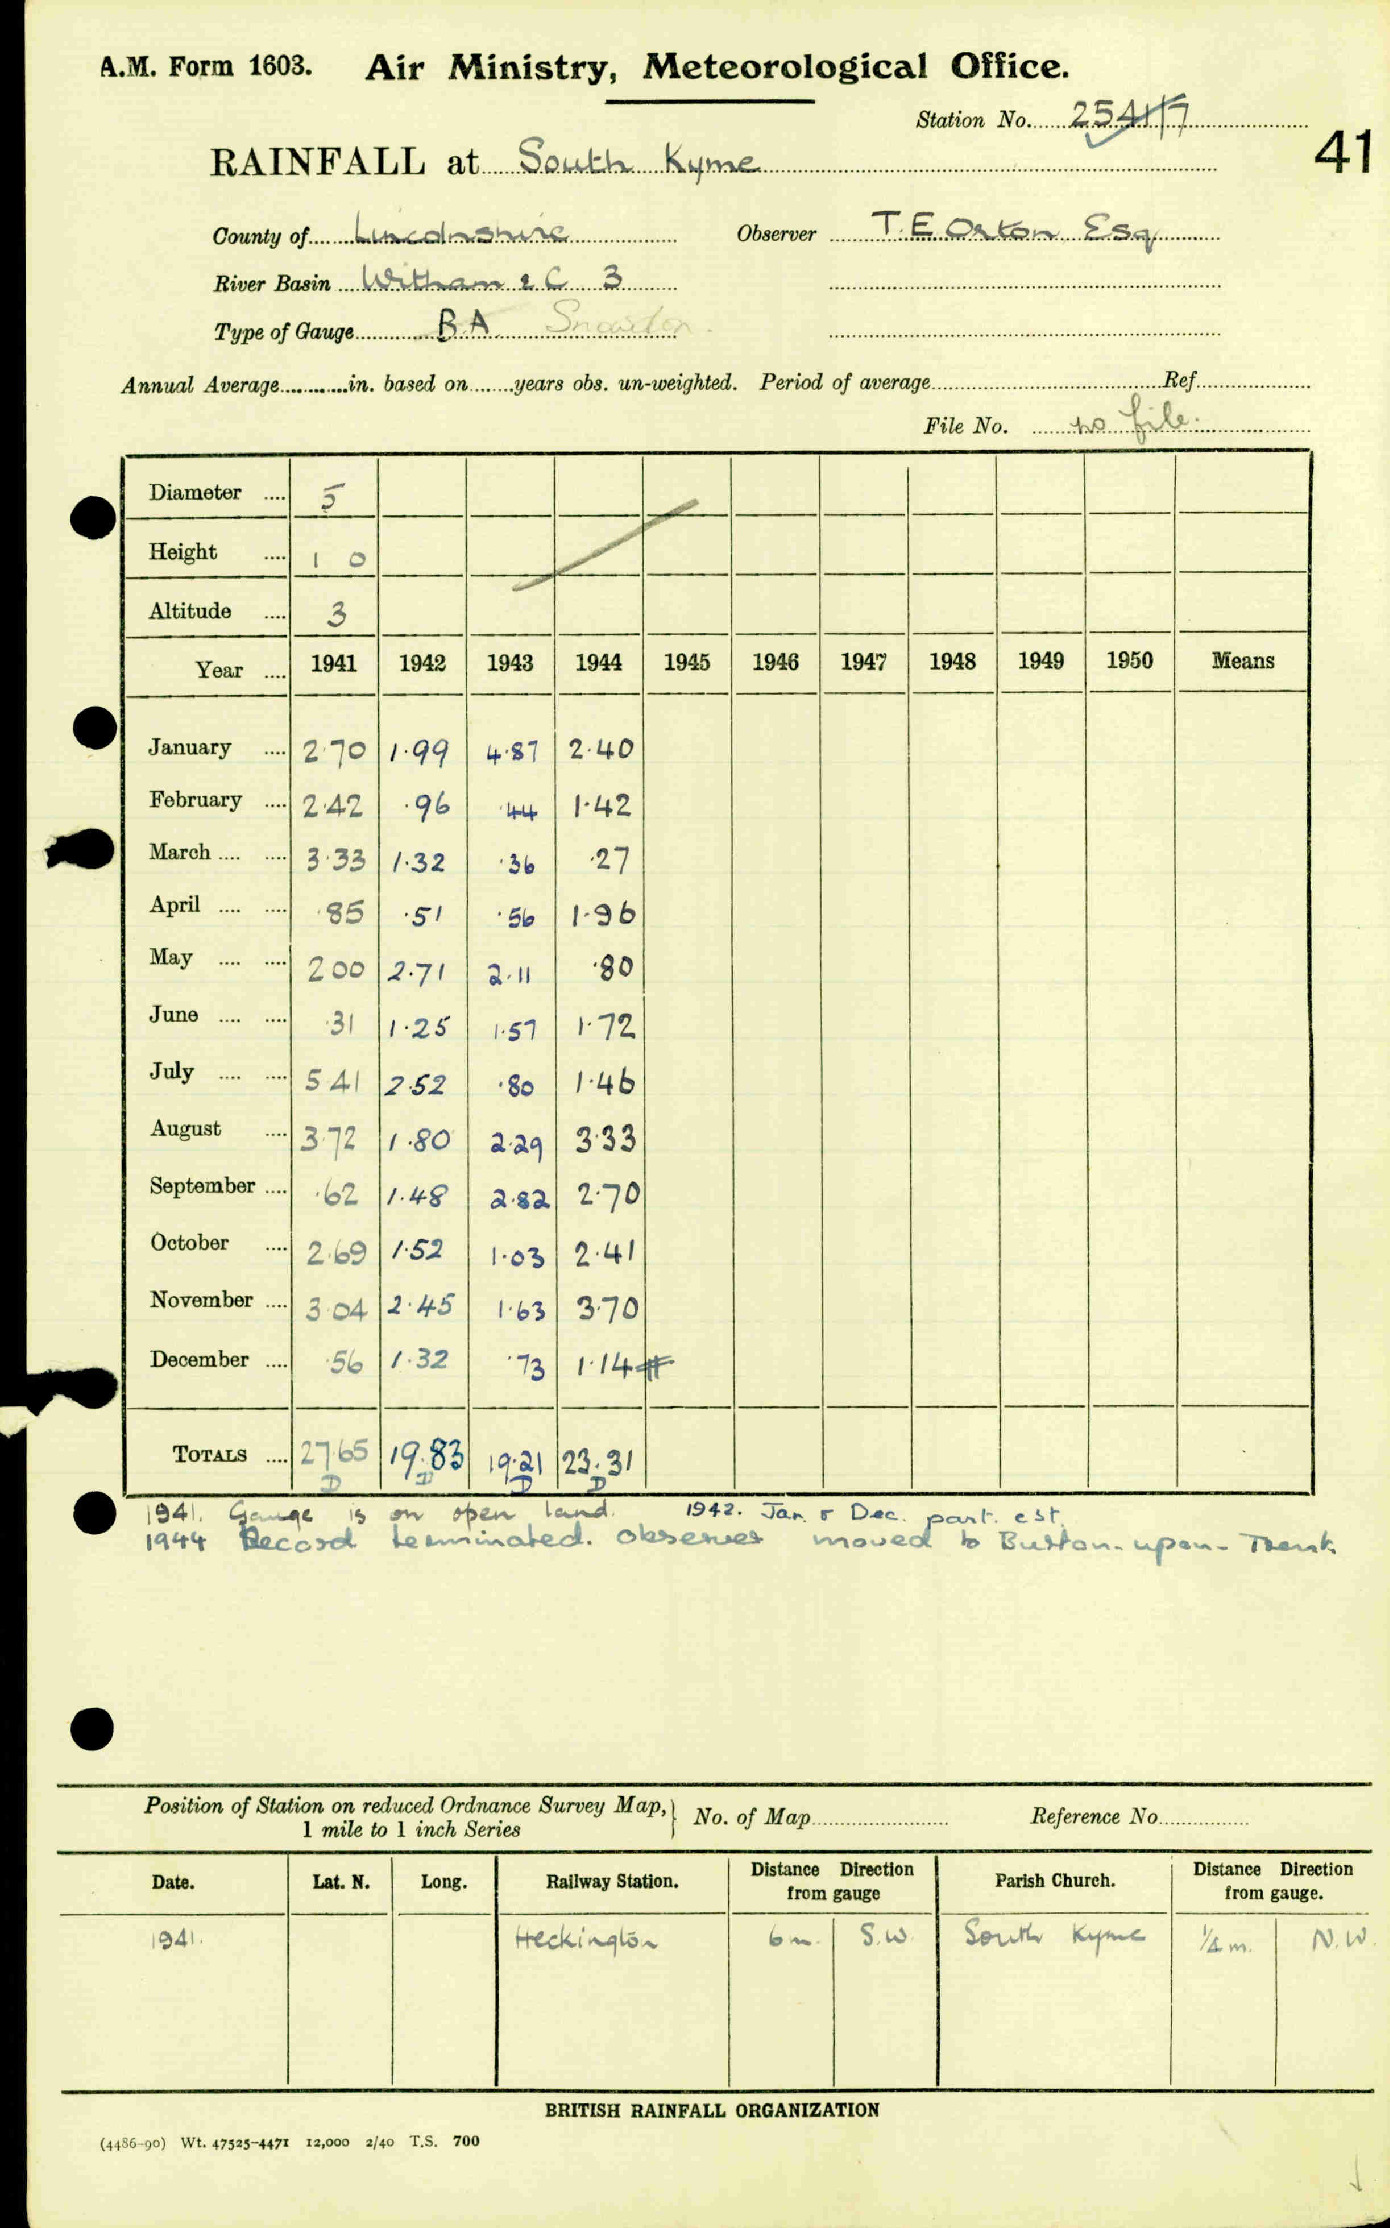 A.M. Form 1603. Air Ministry, Meteorological Office.
Station No. 2541/7
41
RAINFALL at South Kyme
County of Lincolnshire Observer T. E Orton Esq
River Basin Witham & C 3
Type of Gauge BA Snowdon.
Annual Average............in. based on.......years obs. un-weighted. Period of average............Ref............
File No. no file.
Diameter .... 5
Height .... 1 0
Altitude .... 3
Year .... 1941 1942 1943 1944 1945 1946 1947 1948 1949 1950 Means
January .... 2.70 1.99 4.87 2.40
February .... 2.42 .96 .44 1.42
March .... .... 3.33 1.32 .36 .27
April .... .... .85 .51 .56 1.96
May .... .... 2 00 2.71 2.11 .80
June .... .... .31 1.25 1.57 1.72
July .... .... 5 41 2.52 .80 1.46
August .... 3.72 1.80 2.29 3.33
September .... .62 1.48 2.82 2.70
October .... 2.69 1.52 1.03 2.41
November .... 3.04 2.45 1.63 3.70
December .... .56 1.32 .73 1.14 #
TOTALS .... 27.65 19.83 19.21 23.31
D D D D
1941. Gauge is on open land. 1942. Jan. & Dec. part. est.
1944 Record terminated. Observer moved to Burton-upon-Trent.
Position of Station on reduced Ordnance Survey Map, } No. of Map............ Reference No............
1 mile to 1 inch Series
Date. Lat. N. Long. Railway Station. Distance Direction from gauge Parish Church. Distance Direction from gauge.
1941. Heckington 6 m. S.W. South Kyme 1/4 m. N.W.
BRITISH RAINFALL ORGANIZATION
(4486-90) Wt. 47525-4471 12,000 2/40 T.S. 700